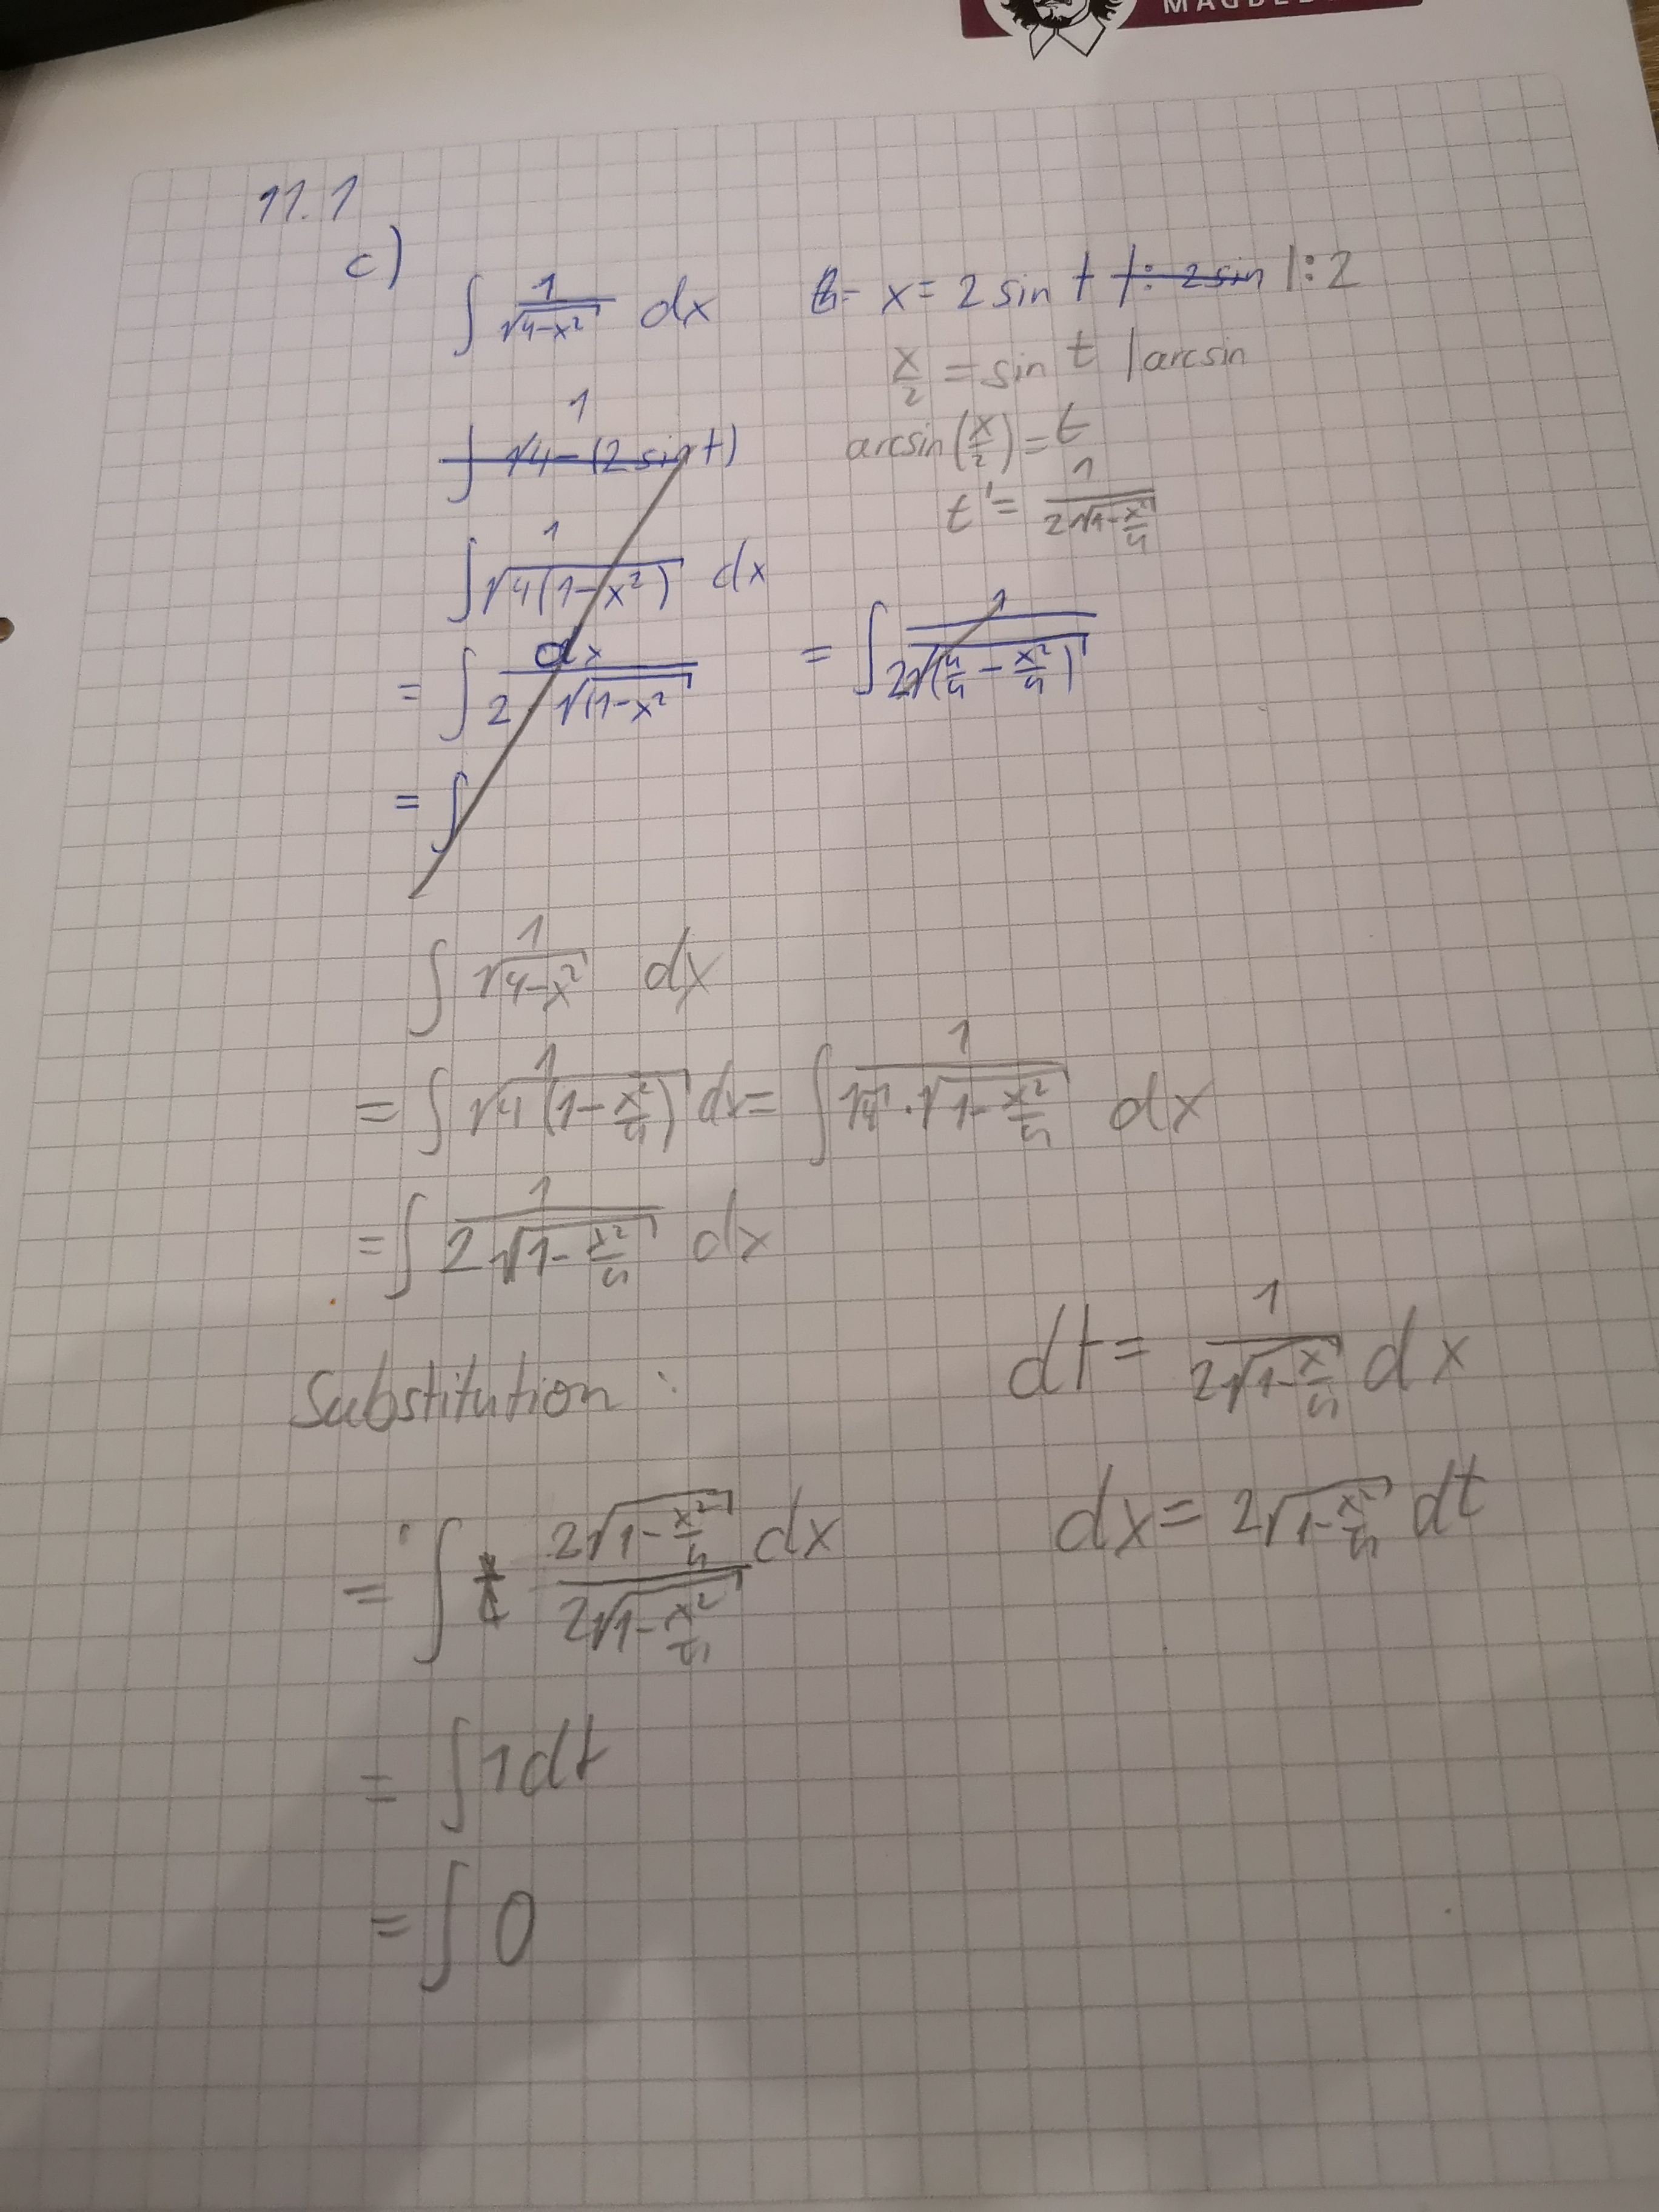 MAGDEB
11.1
c)
∫ 1/√(4-x²) dx    x = 2 sin t |: 2 sin |:2
x/2 = sin t |arcsin
∫ 1/√4-(2 sin t)
arcsin(x/2) = t
t' = 1/(2√(1-x²/4))
∫ 1/√(4(1-x²)) dx
= ∫ dx/(2·√(1-x²))    = ∫ 1/(2√(4/4 - x²/4))
= ∫
∫ 1/√(4-x²) dx
= ∫ 1/√(4(1-x²/4)) dx = ∫ 1/(√4·√(1-x²/4)) dx
= ∫ 1/(2√(1-x²/4)) dx
Substitution :    dt = 1/(2√(1-x²/4)) dx
= ∫ (2√(1-x²/4))/(2√(1-x²/4)) dx    dx = 2√(1-x²/4) dt
= ∫ 1 dt
= ∫ 0